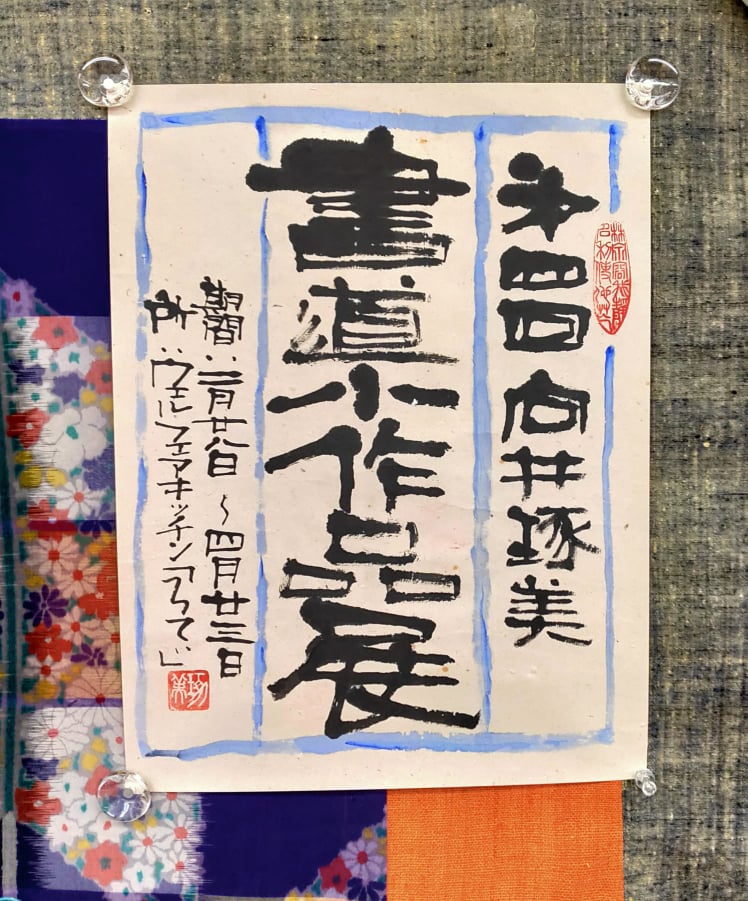 第四回 向井琢美
書道小作品展
期間：二月廿八日〜四月廿三日
所：ウェルフェアキッチン「かって」